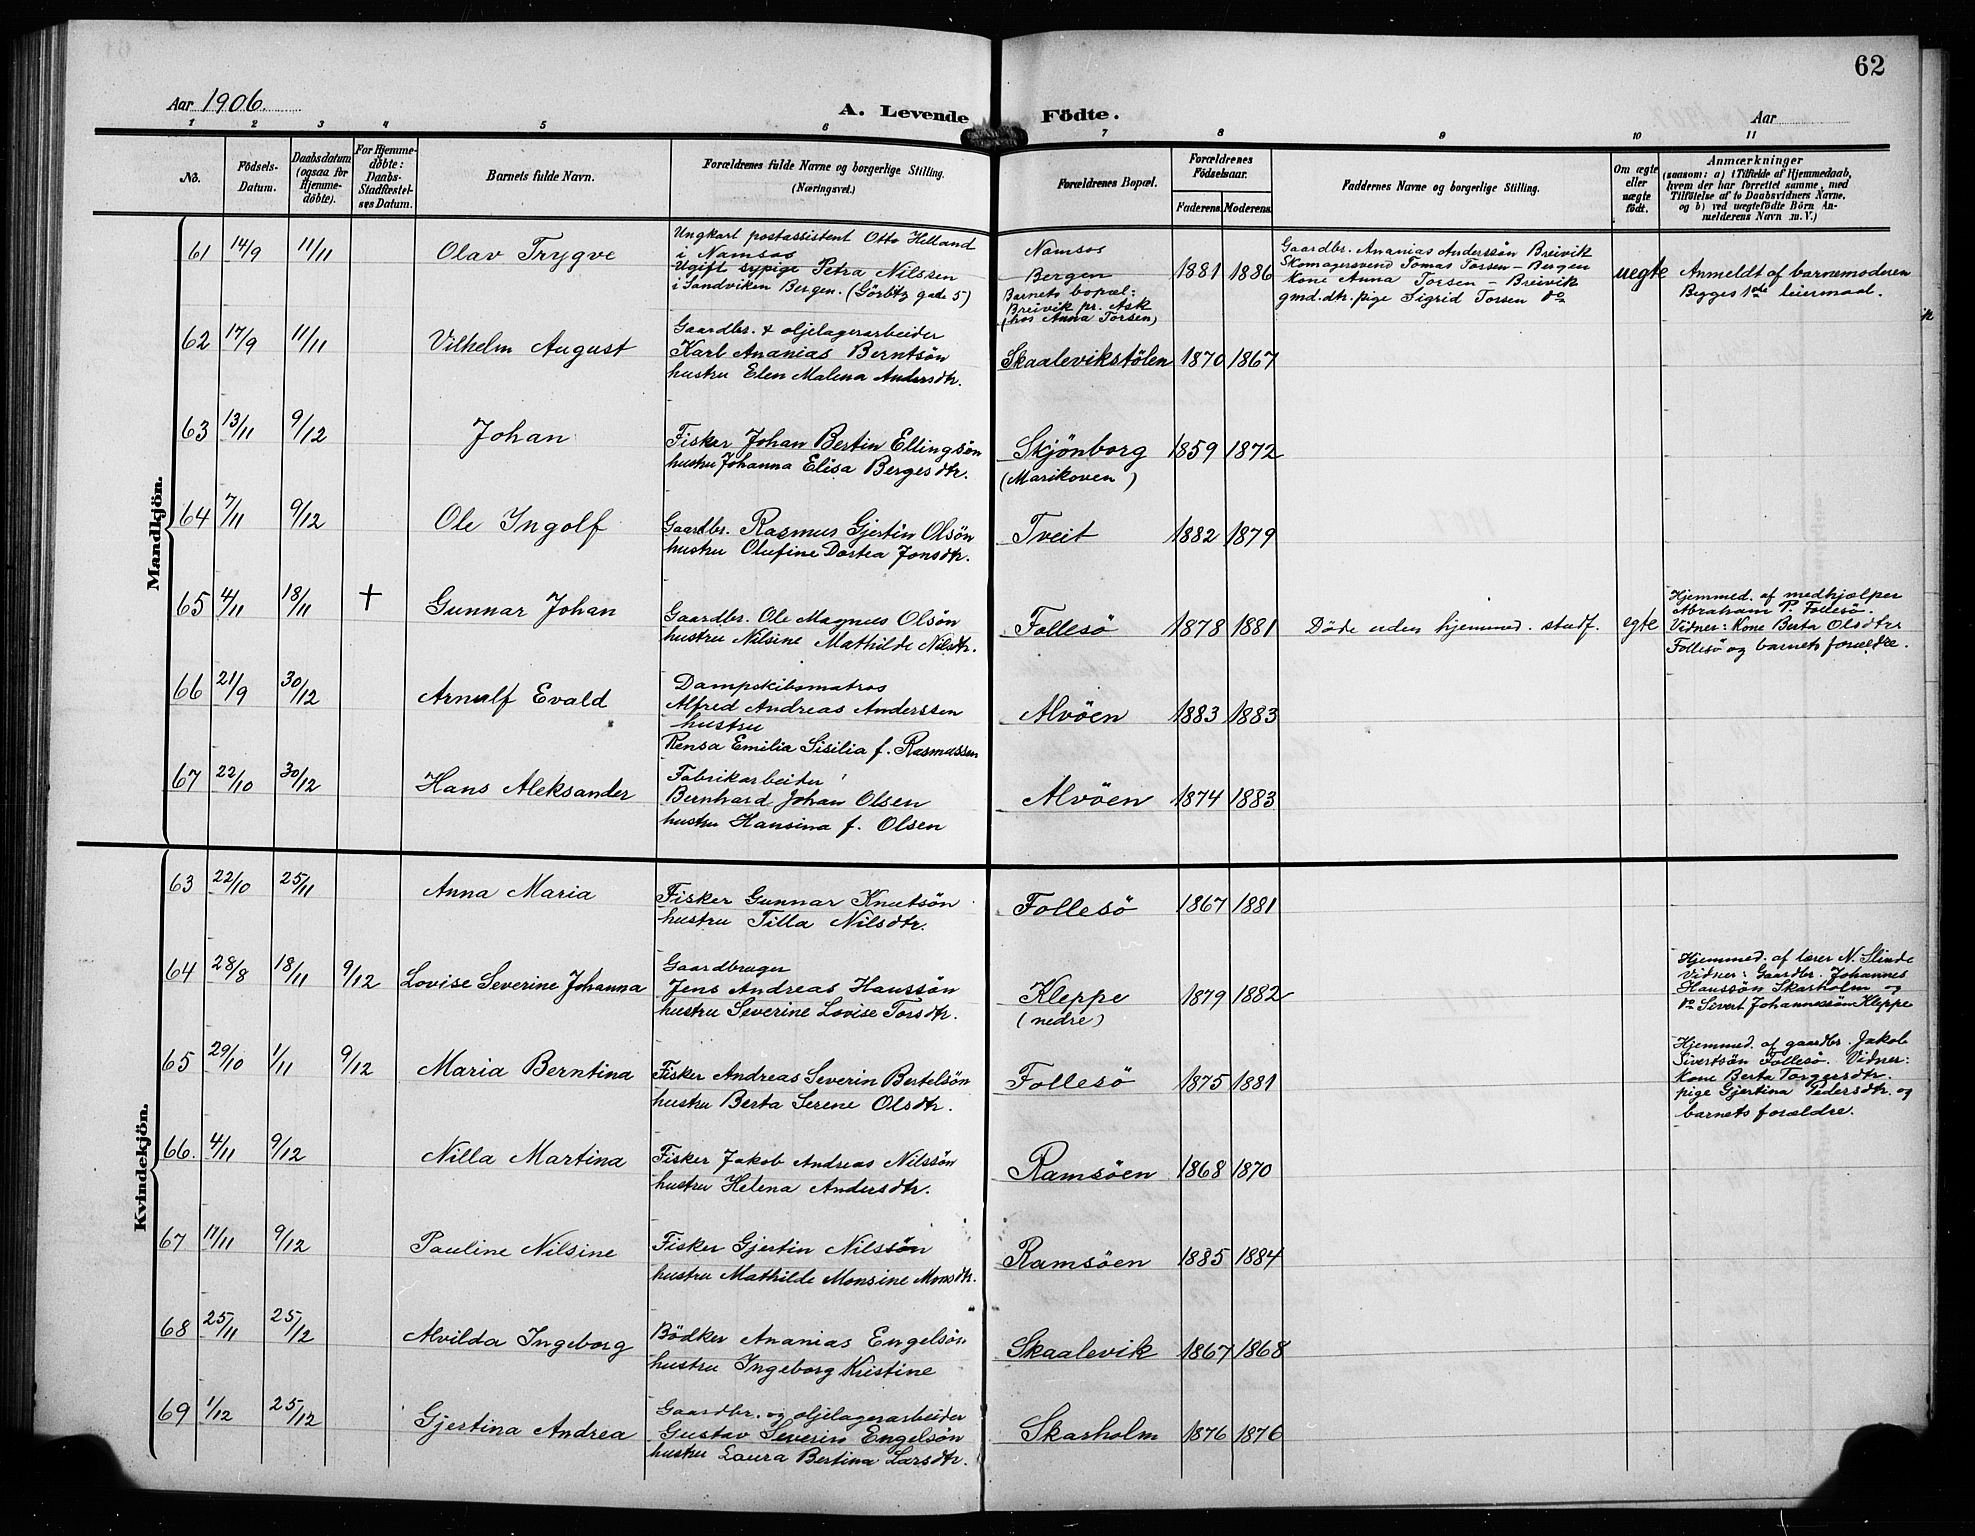 62
Aar 1906.
A. Levende Födte.
Aar
1 2 3 4 5 6 7 8 9 10 11
No.
Födsels-Datum.
Daabsdatum (ogsaa for Hjemme-döbte).
For Hjemme-döbte: Daabs-Stadfæstel-ses Datum.
Barnets fulde Navn.
Forældrenes fulde Navne og borgerlige Stilling.
(Næringsvei.)
Forældrenes Bopæl.
Forældrenes Födselsaar.
Faderens. Moderens.
Faddernes Navne og borgerlige Stilling.
Om ægte eller uægte födt.
Anmærkninger
(saasom: a) i Tilfælde af Hjemmedaab,
hvem der har forrettet samme, med
Tilföielse af to Daabsvidners Navne,
og b) ved uægtefödte Börn An-
melderens Navn m. V.)
Mandkjön.
61 14/9 11/11 Olav Trygve
Ungkarl postassistent Otto Helland
i Namsos
Ugift sypige Petra Nilssen
i Sandviken Bergen. (Görbitz gade 5)
Namsos
Bergen
Barnets bopæl:
Breivik pr. Ask
(hos Anna Torsen)
1881 1886
Gaardbr. Ananias Anderssön Breivik
Skomagersvend Tomas Torsen - Bergen
Kone Anna Torsen - Breivik
gmd. dtr. pige Sigrid Torsen do
uegte
Anmeldt af barnemoderen
Begges 1ste leiermaal.
62 17/9 11/11 Vilhelm August
Gaardbr. & oljelagerarbeider
Karl Ananias Berntsön
hustru Elen Malena Andersdtr.
Skaalevikstölen 1870 1867
63 13/11 9/12 Johan
Fisker Johan Bertin Ellingsön
hustru Johanna Elisa Bergesdtr.
Skjönborg 1859 1872
(Marikoven)
64 7/11 9/12 Ole Ingolf
Gaardbr. Rasmus Gjertin Olsön
hustru Olufine Dortea Jonsdtr.
Tveit 1882 1879
65 4/11 18/11 + Gunnar Johan
Gaardbr. Ole Magnus Olsön
hustru Nilsine Mathilde Nilsdtr.
Follesö 1878 1881 Döde uden hjemmed. stadf. egte
Hjemmed. af medhjælper
Abraham P. Follesö.
Vidner: Kone Berta Olsdtr
Follesö og barnets forældre.
66 21/9 30/12 Arnulf Evald
Dampskibsmatros
Alfred Andreas Anderssen
hustru
Rensa Emilia Sisilia f. Rasmussen
Alvöen 1883 1883
67 22/10 30/12 Hans Aleksander
Fabrikarbeider
Bernhard Johan Olsen
hustru Hansina f. Olsen
Alvöen 1874 1883
Kvindekjön.
63 22/10 25/11 Anna Maria
Fisker Gunnar Knutsön
hustru Tilla Nilsdtr.
Follesö 1867 1881
64 28/8 18/11 9/12 Lovise Severine Johanna
Gaardbruger
Jens Andreas Hanssön
hustru Severine Lovise Torsdtr.
Kleppe 1879 1882
(nedre)
Hjemmed. af lærer N. Slinde
Vidner: Gaardbr. Johannes
Hanssön Skarholm og
do Sivert Johannessön Kleppe
65 29/10 1/11 9/12 Maria Berntina
Fisker Andreas Severin Bertelsön
hustru Berta Serene Olsdtr.
Follesö 1875 1881
Hjemmed. af gaardbr. Jakob
Sivertsön Follesö. Vidner:
Kone Berta Torgersdtr.
pige Gjertina Pedersdtr. og
barnets forældre.
66. 4/11 9/12 Nilla Martina
Fisker Jakob Andreas Nilssön
hustru Helena Andersdtr.
Ramsöen 1868 1870
67 11/11 9/12 Pauline Nilsine
Fisker Gjertin Nilssön
hustru Mathilde Monsine Monsdtr.
Ramsöen 1885 1884
68 25/11 25/12 Alvilda Ingeborg
Bödker Ananias Engelsön
hustru Ingeborg Kristine
Skaalevik 1867 1868
69 1/12 25/12 Gjertina Andrea
Gaardbr. og oljelagerarbeider
Gustav Severin Engelsön
hustru Laura Bertina Larsdtr.
Skarholm 1876 1876